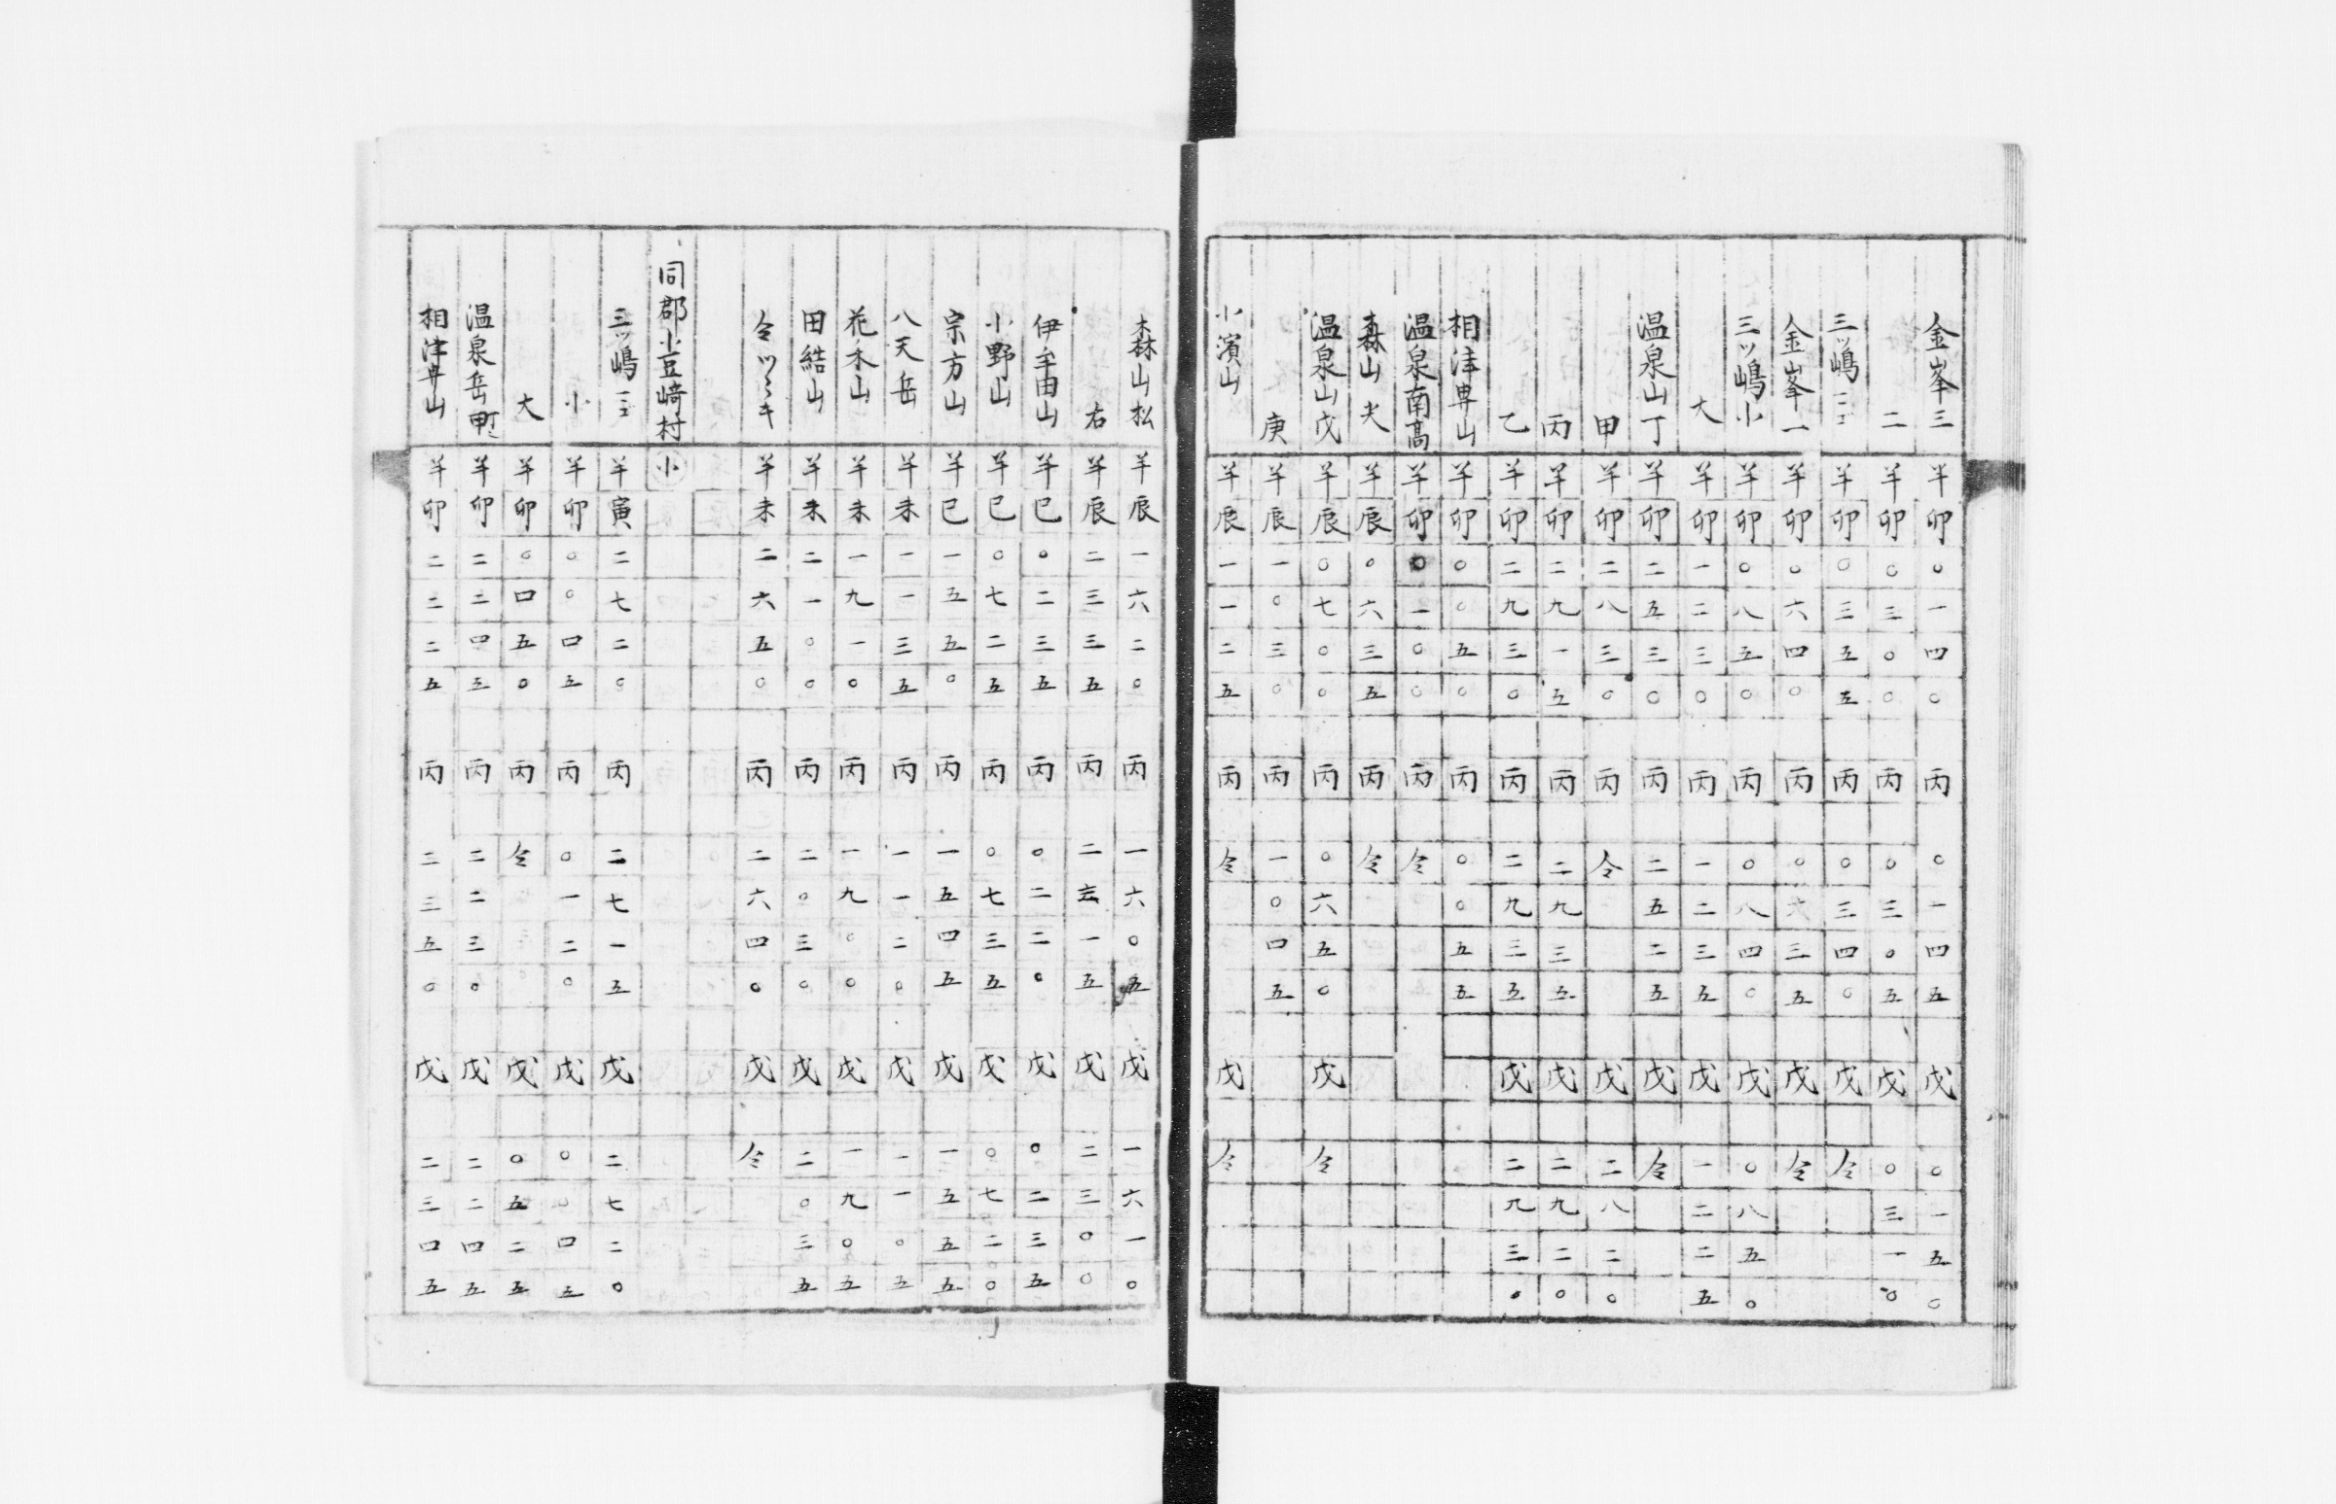 金峯三 半卯 〇一四〇 丙 〇一四五 戊 〇一五〇
二 半卯 〇三〇〇 丙 〇三〇五 戊 〇三一〇
三ツ嶋二ニ 半卯 〇三五五 丙 〇三四〇 戊 仝
金峯一 半卯 〇六四〇 丙 〇六三五 戊 仝
三ツ嶋小 半卯 〇八五〇 丙 〇八四〇 戊 〇八五〇
大 半卯 一二三〇 丙 一二三五 戊 一二二五
温泉山丁 半卯 二五三〇 丙 二五二五 戊 仝
甲 半卯 二八三〇 丙 仝 戊 二八二〇
丙 半卯 二九一五 丙 二九三五 戊 二九二〇
乙 半卯 二九三〇 丙 二九三五 戊 二九三〇
相津山 半卯 〇〇五〇 丙 〇〇五五
温泉南髙 半卯 〇一〇〇 丙 仝
森山 半辰 〇六三五 丙 仝
温泉山戊 半辰 〇七〇〇 丙 〇六五〇 戊 仝
庚 半辰 一〇三〇 丙 一〇四五
小濱山 半辰 一一二五 丙 仝 戊 仝
森山松 半辰 一六二〇 丙 一六〇五 戊 一六一〇
右 半辰 二三三五 丙 二一五 戊 二三〇〇
伊牟田山 半巳 〇二三五 丙 〇二二〇 戊 〇二三五
小野山 半巳 〇七二五 丙 〇七三五 戊 〇七二〇
宗方山 半巳 一五五〇 丙 一五四五 戊 一五五五
八天岳 半未 一一三五 丙 一一二〇 戊 一一〇五
花木山 半未 一九一〇 丙 一九〇〇 戊 一九〇五
田結山 半未 二一〇〇 丙 二〇三〇 戊 二〇三五
仝ツヽキ 半未 二六五〇 丙 二六四〇 戊 仝
同郡小豆﨑村 小
三ツ嶋二ニ 半寅 二七二〇 丙 二七一五 戊 二七二〇
小 半卯 〇〇四五 丙 〇一二〇 戊 〇〇四五
大 半卯 〇四五〇 丙 仝 戊 〇五二五
温泉岳 半卯 二二四五 丙 二二三〇 戊 二二四五
相津山 半卯 二二二五 丙 二三五〇 戊 二三四五